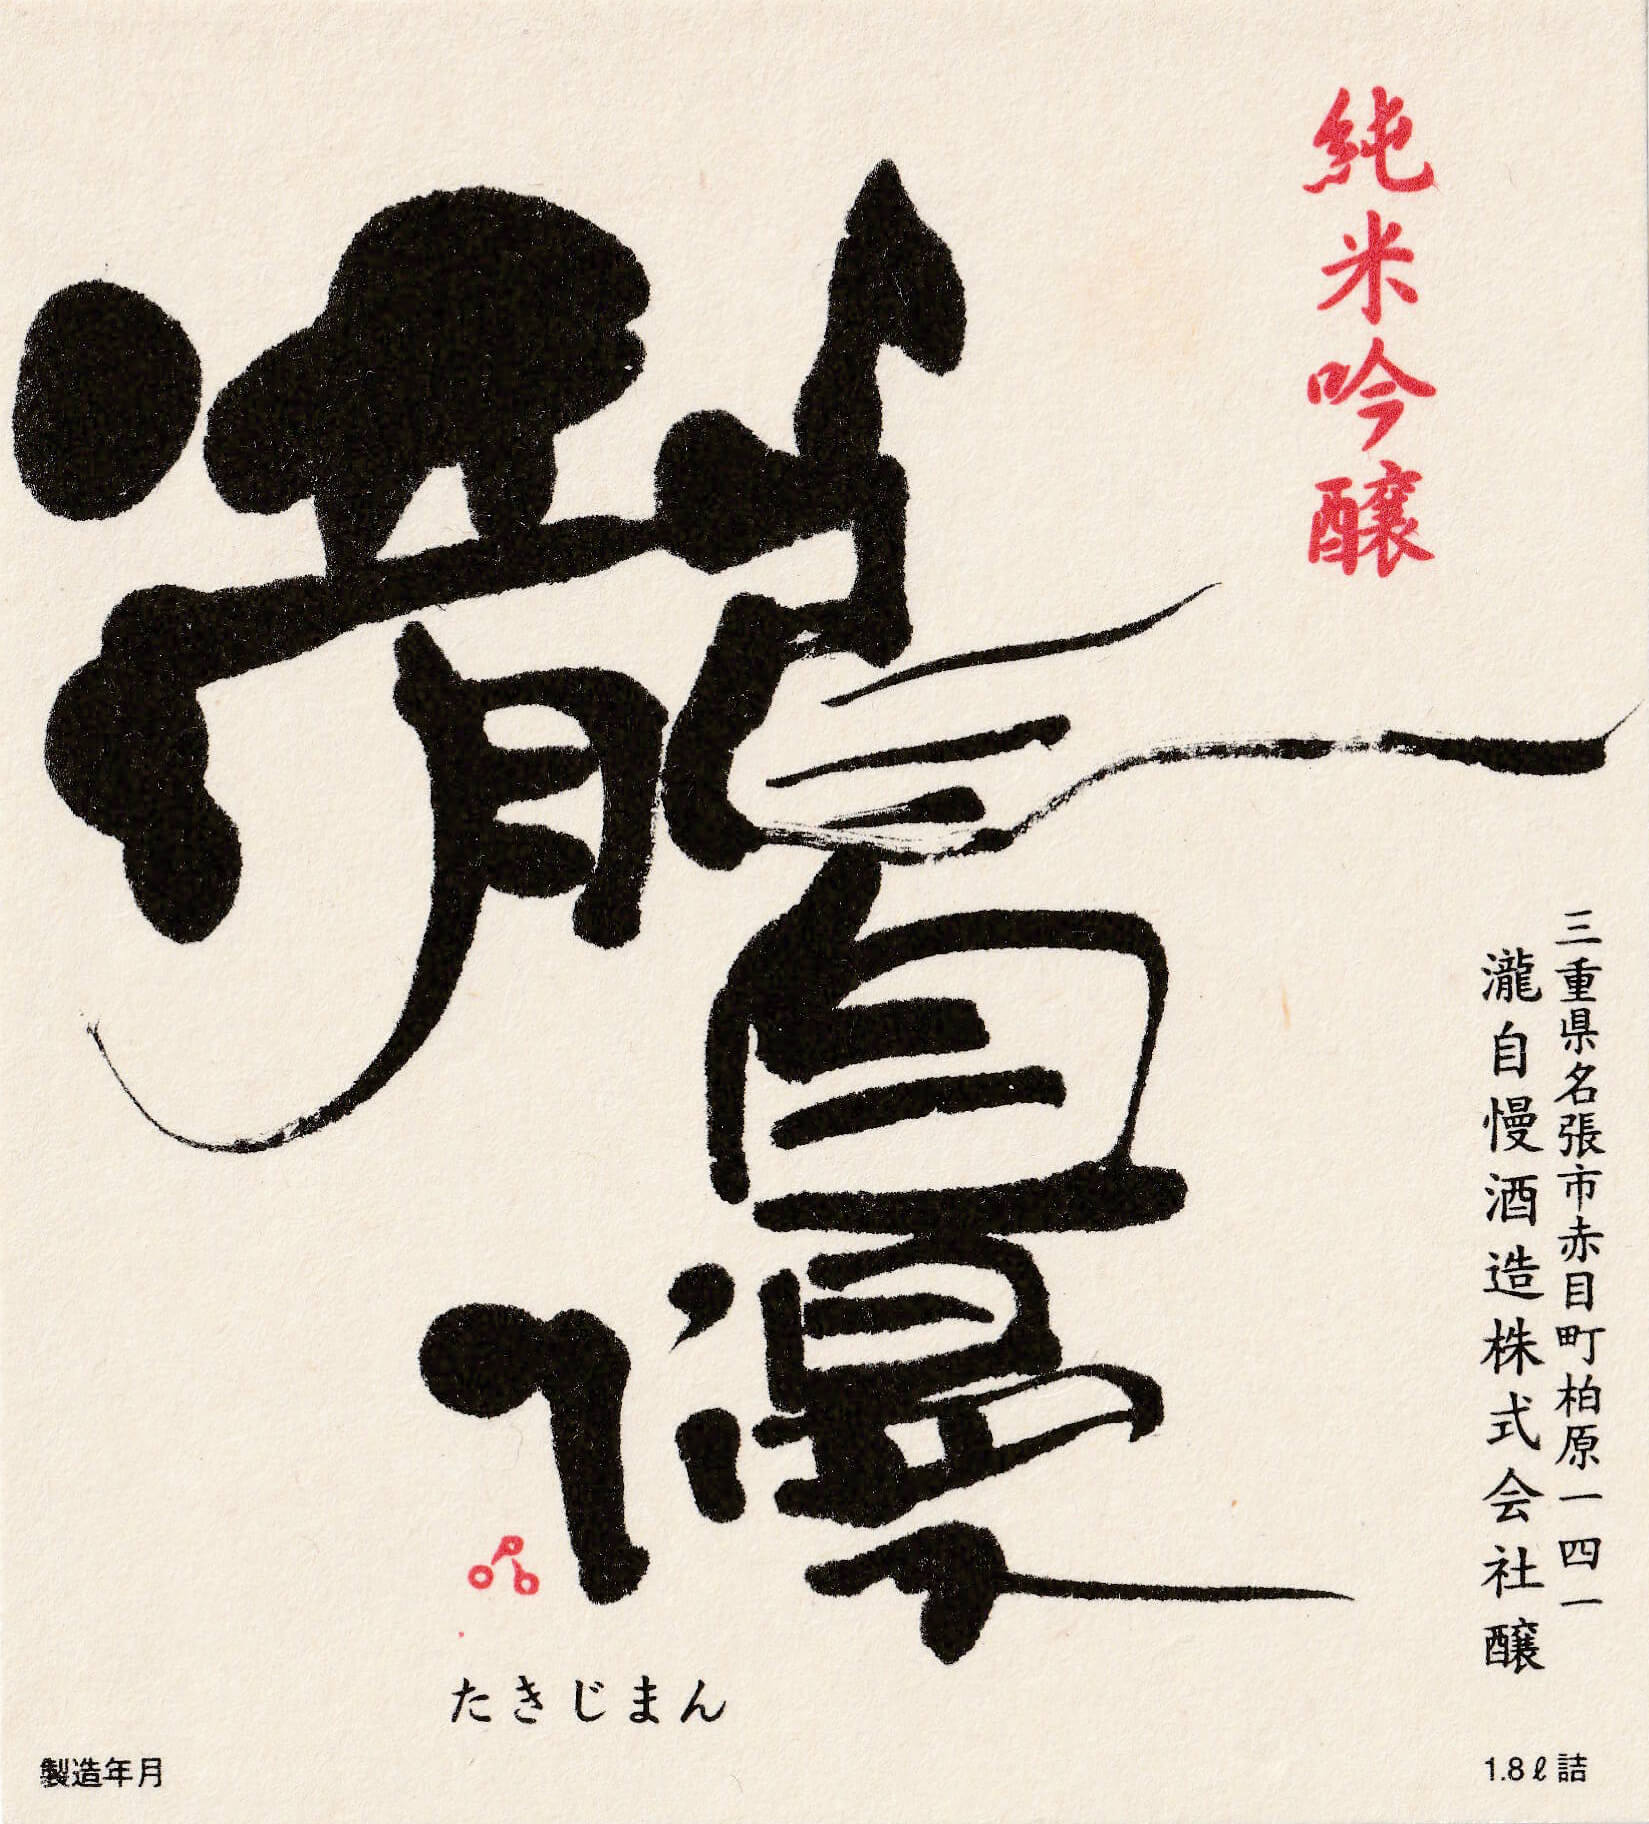 純米吟醸
瀧自慢
三重県名張市赤目町柏原一四一
瀧自慢酒造株式会社醸
たきじまん
製造年月
1.8ℓ詰